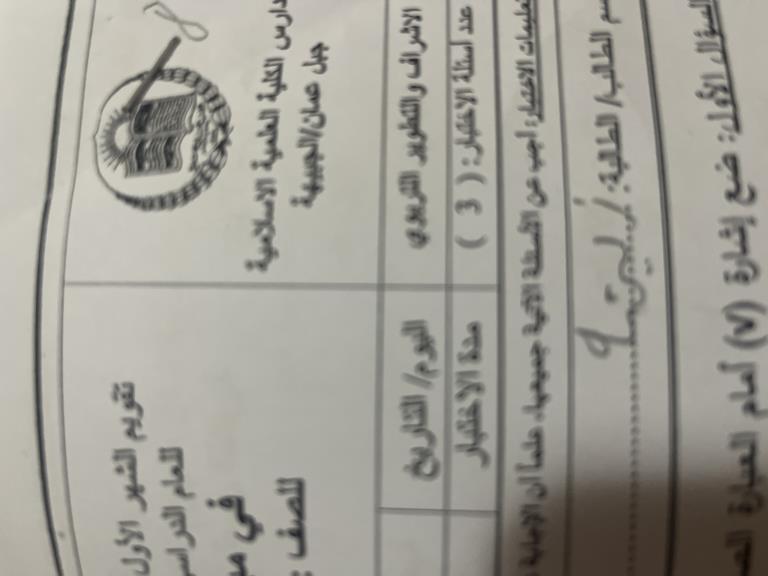 مدارس الكلية العلمية الاسلامية
جبل عمان/الجبيهة
تقويم الشهر الأول
للعام الدراسي
في
للصف :
الاشراف والتطوير التربوي
اليوم/ التاريخ
عدد أسئلة الاختبار: ( 3 )
مدة الاختبار
تعليمات الاختبار: اجب عن الأسئلة الآتية جميعها، علماً ان الإجابة
اسم الطالب/ الطالبة:
السؤال الأول: ضع إشارة (√) أمام العبارة